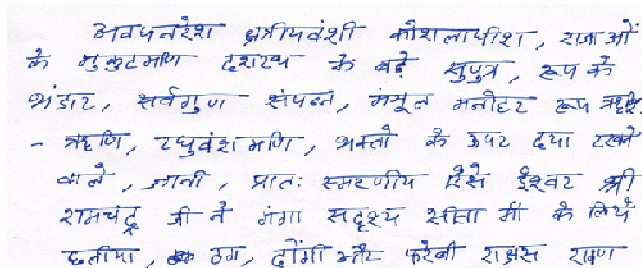 अवधनरेश क्षत्रीयवंशी कोशलाधीश, राजाओं
के मुकुटमणि दशरथ के बड़े सुपुत्र, रूप के
भंडार, सर्वगुण संपन्न, मंजूल मनोहर रूप
रघुवंशमणि, भक्तो के ऊपर दया रखने
वाले, ज्ञानी, प्रातः स्मरणीय ऐसे ईश्वर श्री
रामचंद्र जी ने गंगा सदृश्य सीता माँ के लिये
ठग, ढोंगी और फरेबी राक्षस रावण